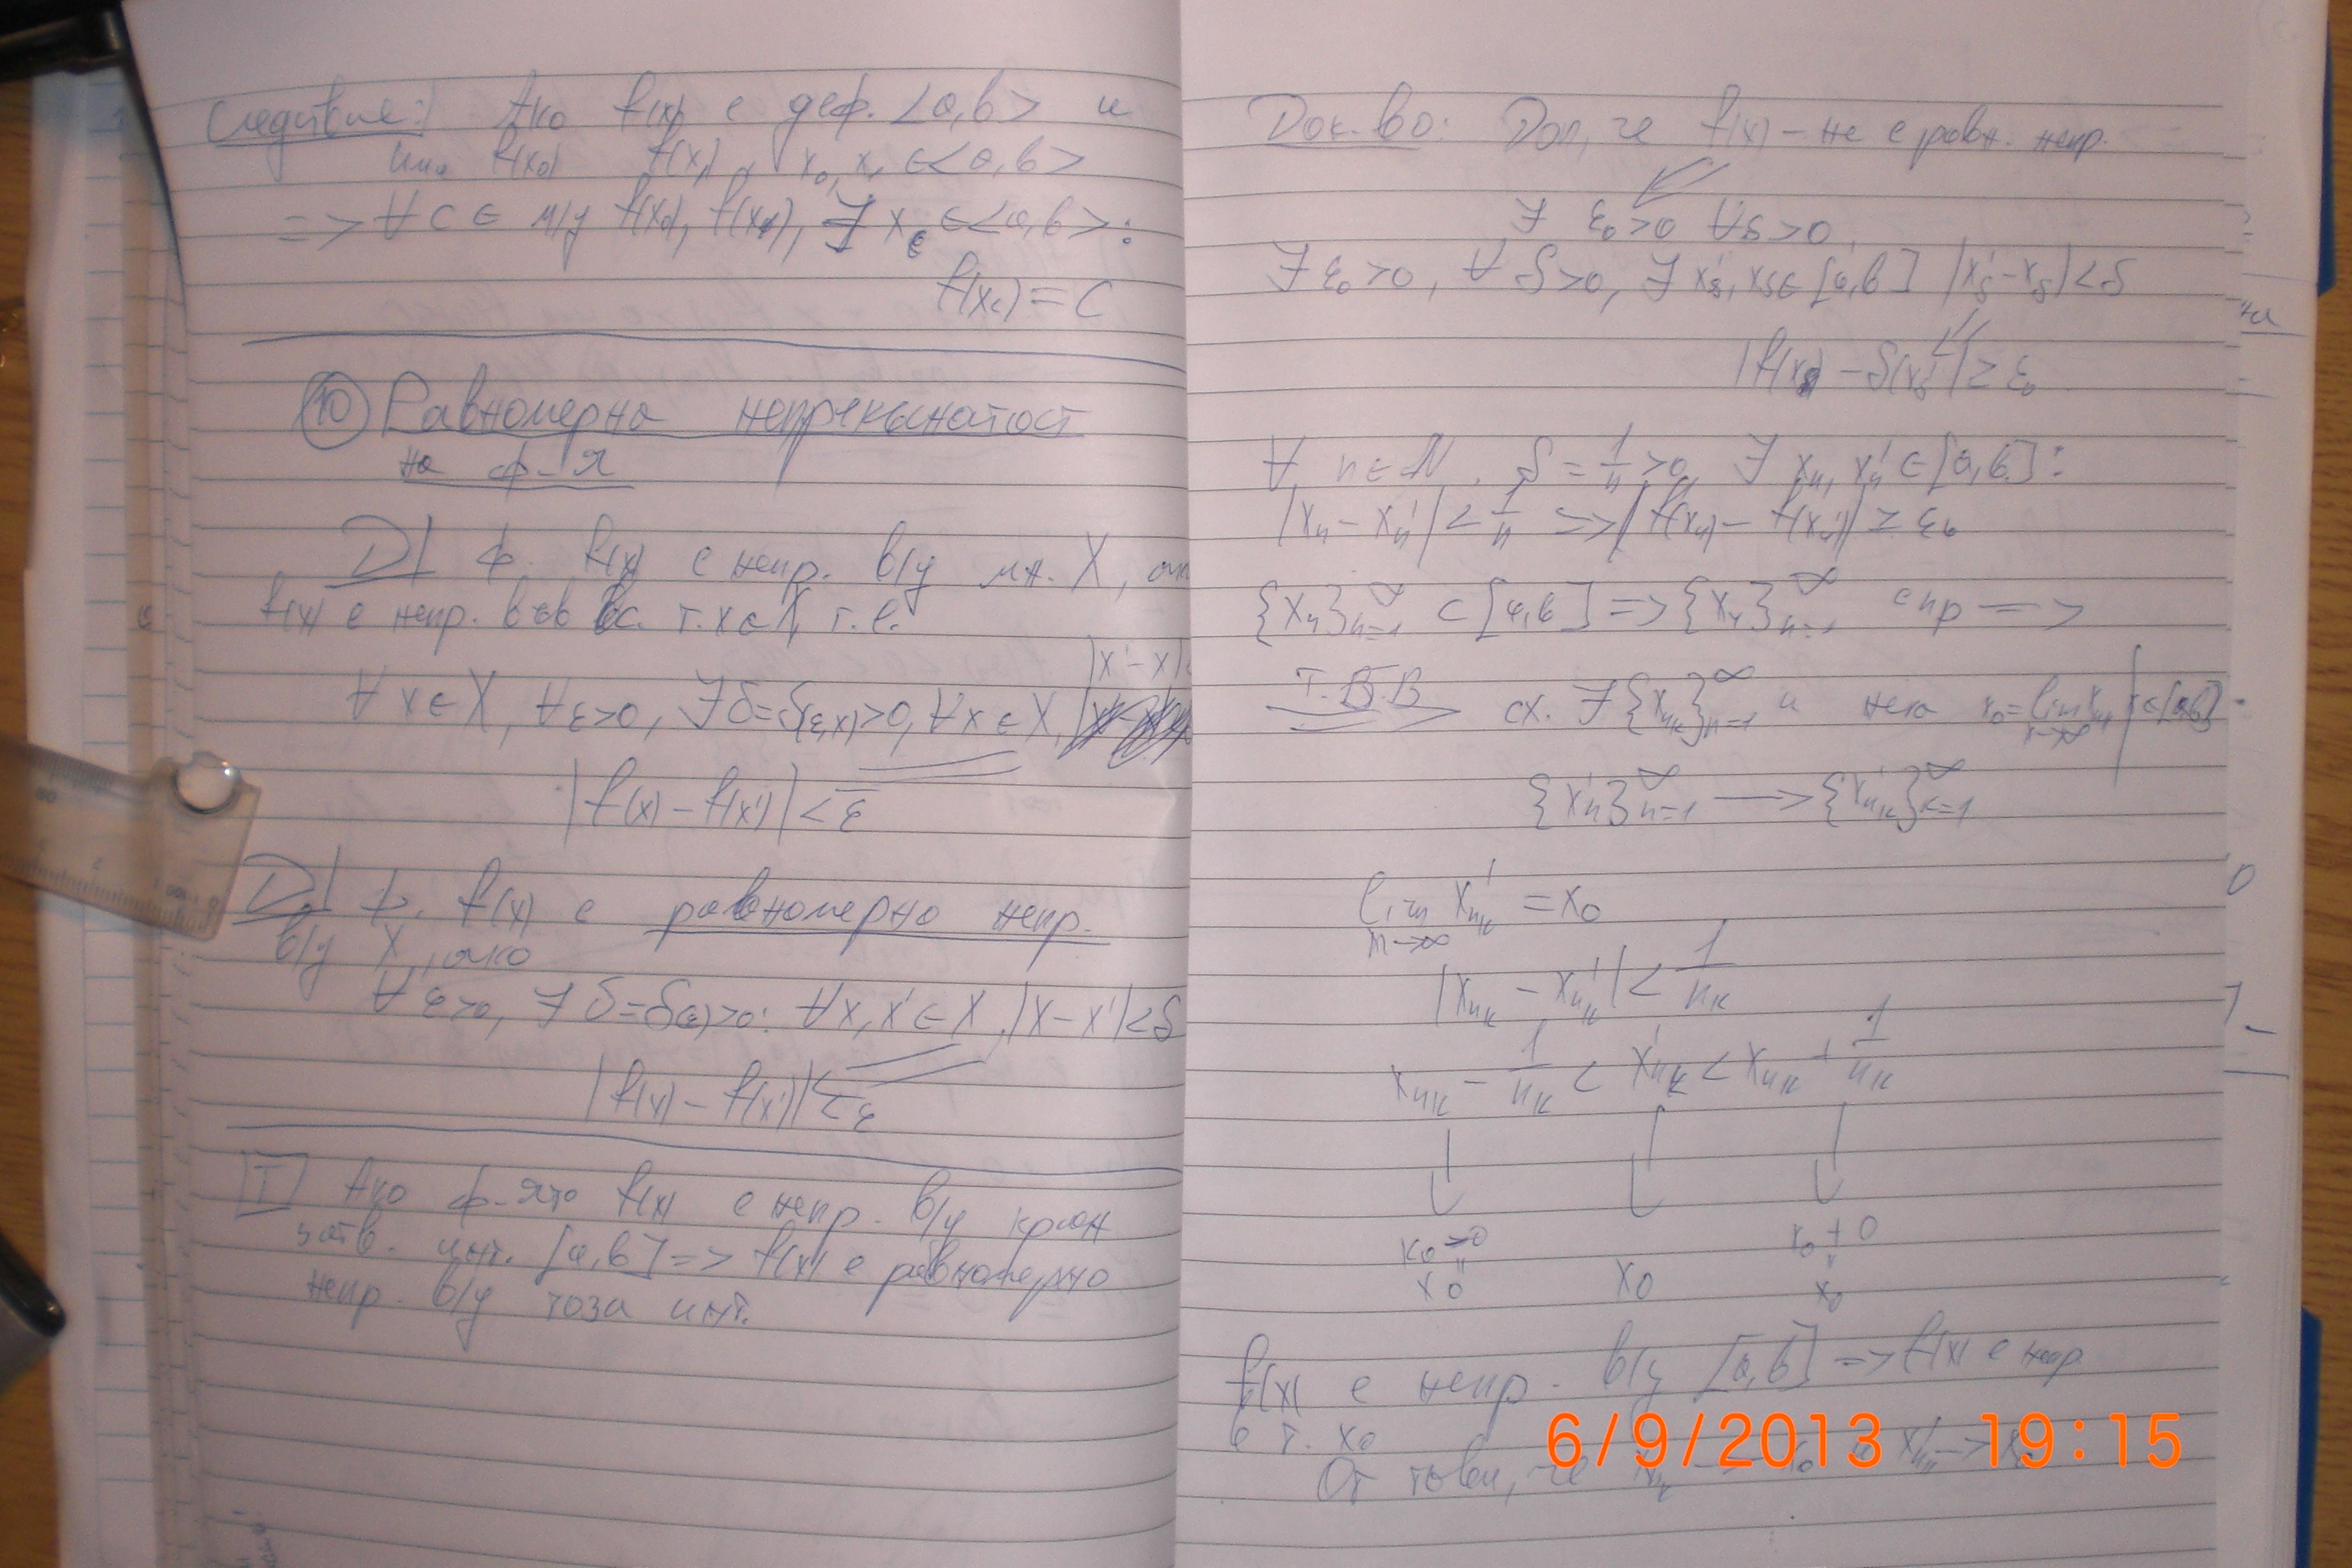 Следствие: Ако f(x) е деф. <a,b> и
има f(x₀) f(x₁), x₀, x₁ ∈<a,b>
=> ∀ C ∈ м/у f(x₀), f(x₁), ∃ x_c ∈<a,b>:
f(x_c) = C
⑩ Равномерна непрекъснатост
на ф-я
D| ф. f(x) е непр. в/у мн. X, ако
f(x) е непр. във вс. т. x ∈ X, т. е.
|x'-x|<
∀ x ∈ X, ∀ε>0, ∃ δ=δ(ε,x)>0, ∀x ∈ X,
|f(x) - f(x')| < ε
D| ф. f(x) е равномерно непр.
в/у X, ако
∀ ε>0, ∃ δ=δ(ε)>0: ∀x, x' ∈ X, |x-x'|<δ
|f(x) - f(x')| < ε
T Ако ф-ята f(x) е непр. в/у краен
затв. инт. [a,b] => f(x) е равномерно
непр. в/у този инт.
Док-во: Доп, че f(x) - не е равн. непр.
∃ ε₀>0 ∀δ>0,
∃ ε₀>0, ∀ δ>0, ∃ x'_δ, x_δ ∈ [a,b] |x'_δ - x_δ| < δ
|f(x_δ) - f(x'_δ)| ≥ ε₀
∀ n ∈ N, δ = 1/n >0, ∃ x_n, x'_n ∈ [a,b]:
|x_n - x'_n| < 1/n => |f(x_n) - f(x'_n)| ≥ ε₀
{x_n}_{n=1}^∞ ⊂ [a,b] => {x_n}_{n=1}^∞ е огр =>
Т. Б. В сх. ∃ {x_{n_k}}_{n=1}^∞ и нека x₀ = lim_{n→∞} x_{n_k} ∈ [a,b]
{x'_n}_{n=1}^∞ → {x'_{n_k}}_{k=1}^∞
lim_{n→∞} x'_{n_k} = x₀
|x_{n_k} - x'_{n_k}| < 1/n_k
x_{n_k} - 1/n_k < x'_{n_k} < x_{n_k} + 1/n_k
x₀-0 x₀+0
x₀ x₀ x₀
f(x) е непр. в/у [a,b] => f(x) е непр.
в т. x₀
От това, че x_{n_k} → x₀ и x'_{n_k} → x₀
6/9/2013 19:15